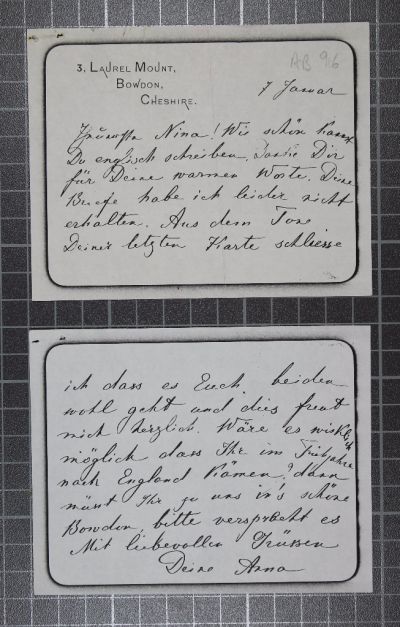 AB 96
3, Laurel Mount,
Bowdon,
Cheshire.
7 Januar
Nina! Wie schön kannst
Du englisch schreiben. Danke Dir
für Deine warmen Worte. Deine
Briefe habe ich leider nicht
erhalten. Aus dem Tone
Deiner letzten Karte schliesse
ich dass es Euch beiden
wohl geht und dies freut
mich herzlich. Wäre es wirklich
möglich dass Ihr im Frühjahre
nach England kämen? dann
müsst Ihr zu uns in's schöne
Bowdon, bitte versprecht es
Mit liebevollen Grüssen
Deine Anna